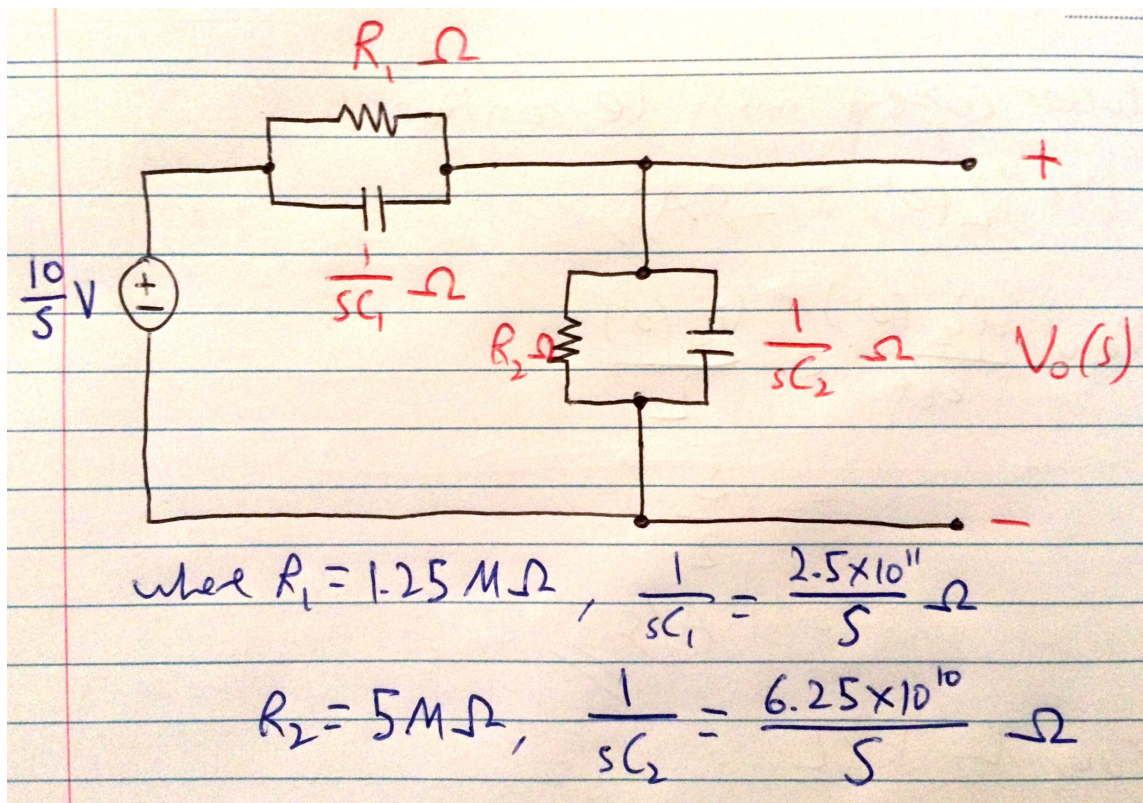 R₁ Ω
1/sC₁ Ω
10/s V
+
−
R₂ Ω
1/sC₂ Ω
V₀(s)
+
−
where R₁ = 1.25 MΩ, 1/sC₁ = 2.5×10¹¹/S Ω
R₂ = 5MΩ, 1/sC₂ = 6.25×10¹⁰/S Ω